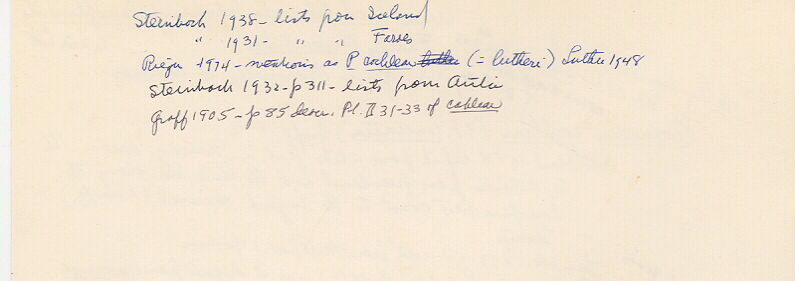 Steinböck 1938 - lists from Iceland
" 1931 - " " Faroes
Rieger 1974 - mentions as P cochlear luther (= lutheri) Luther 1948
Steinböck 1932 - p 311 - lists from Arctic
Graff 1905 - p 85 descr. Pl. II 31-33 of cochlear